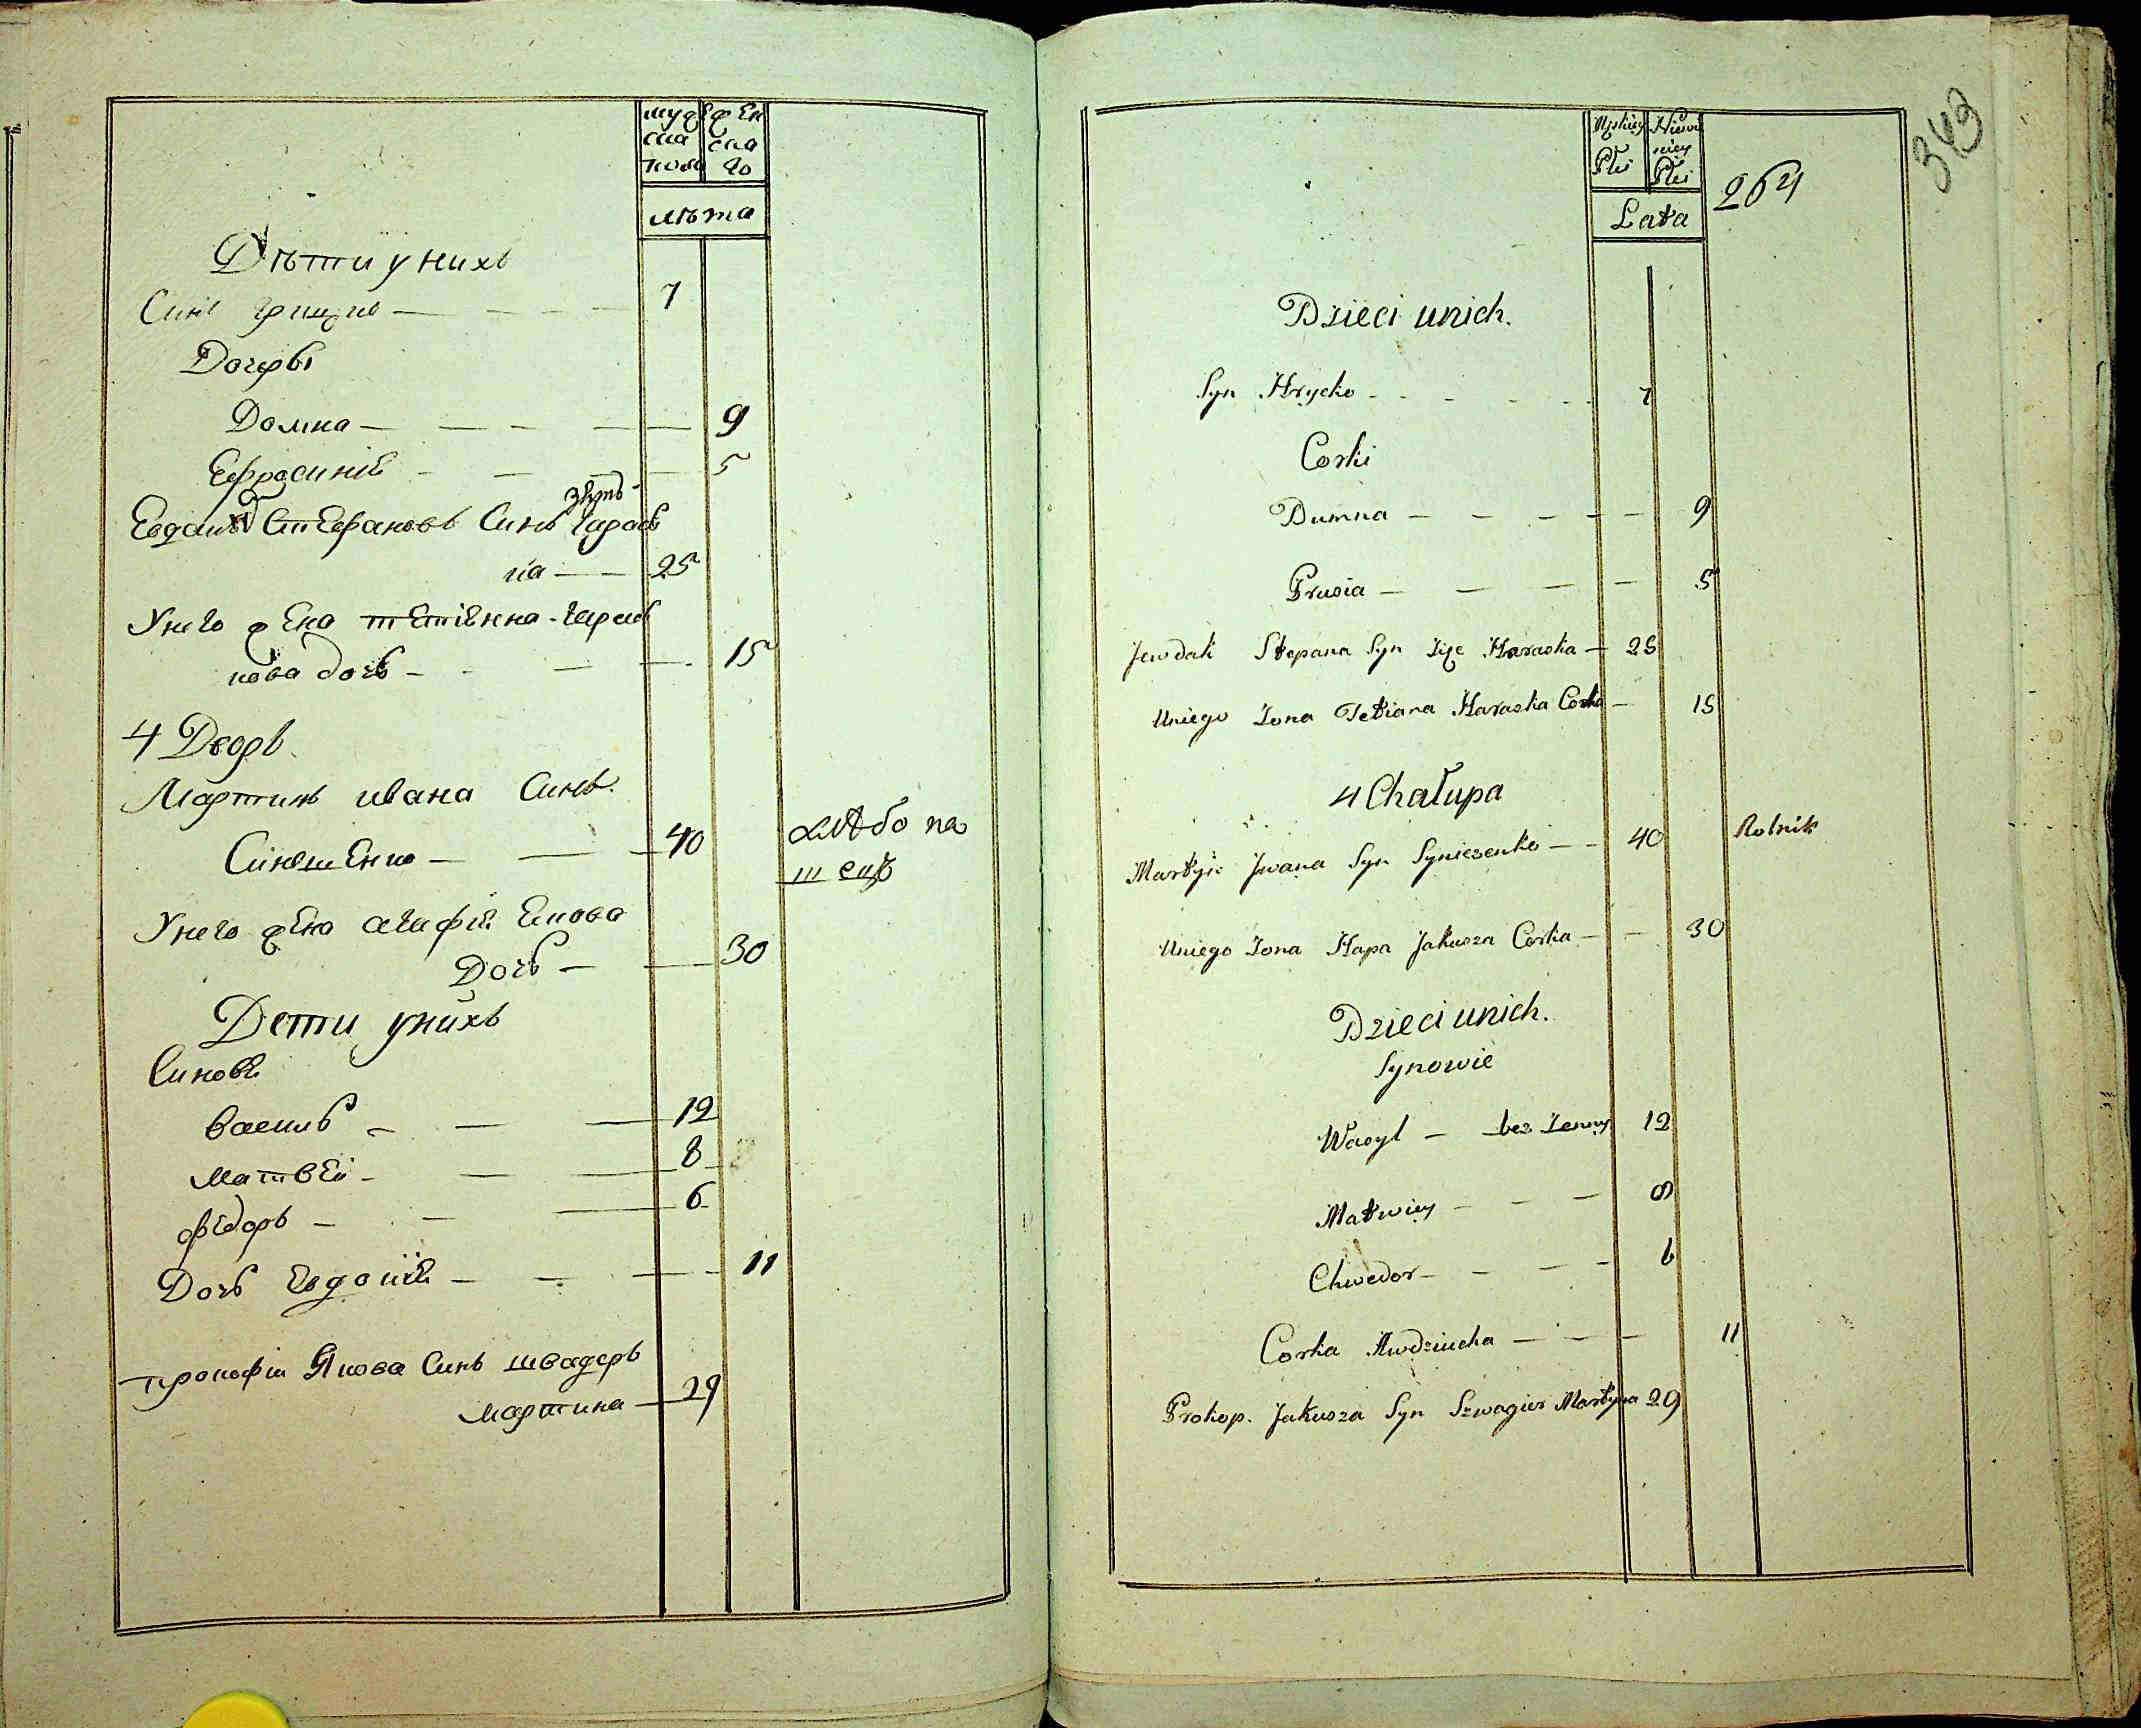 муж
ска
пола
жен
ска
го
лѣта
Дѣти у нихъ
Синъ грицко — 7
Дочеры
Домна — 9
Ефросинія — 5
зять
Евдакъ Стефановъ Синъ гарась
ка — 25
У него жена тетіянна гарась
кова дочь — 15
4 Дворъ
Мартинъ ивана Синъ
Синешенко — 40
хлѣбо па
шецъ
У него жена агафія Якова
Дочь — 30
Дети у нихъ
Синовя
Василь — 12
матвѣй — 8
фѣдоръ — 6
Дочь Евдокія — 11
прокофій Якова Синъ швагеръ
мартина — 29
343
264
Męskiey
Płci
Niewi
eściey
Płci
Lata
Dzieci unich.
Syn Hrycko — 7
Corki
Dumna — 9
Prusia — 5
Jewdak Stepana Syn Zięc Haraska — 25
Uniego Zona Tetiana Haraska Corka — 15
4 Chałupa
Martyn Jwana Syn Synieszenko — 40
Rolnik
Uniego Zona Hapa Jakusza Corka — 30
Dzieci unich.
Synowie
Wasyl — bez Zenny 12
Matwiey — 8
Chwedor — 6
Corka Awdziucha — 11
Prokop. Jakusza Syn Szwagier Martyna 29